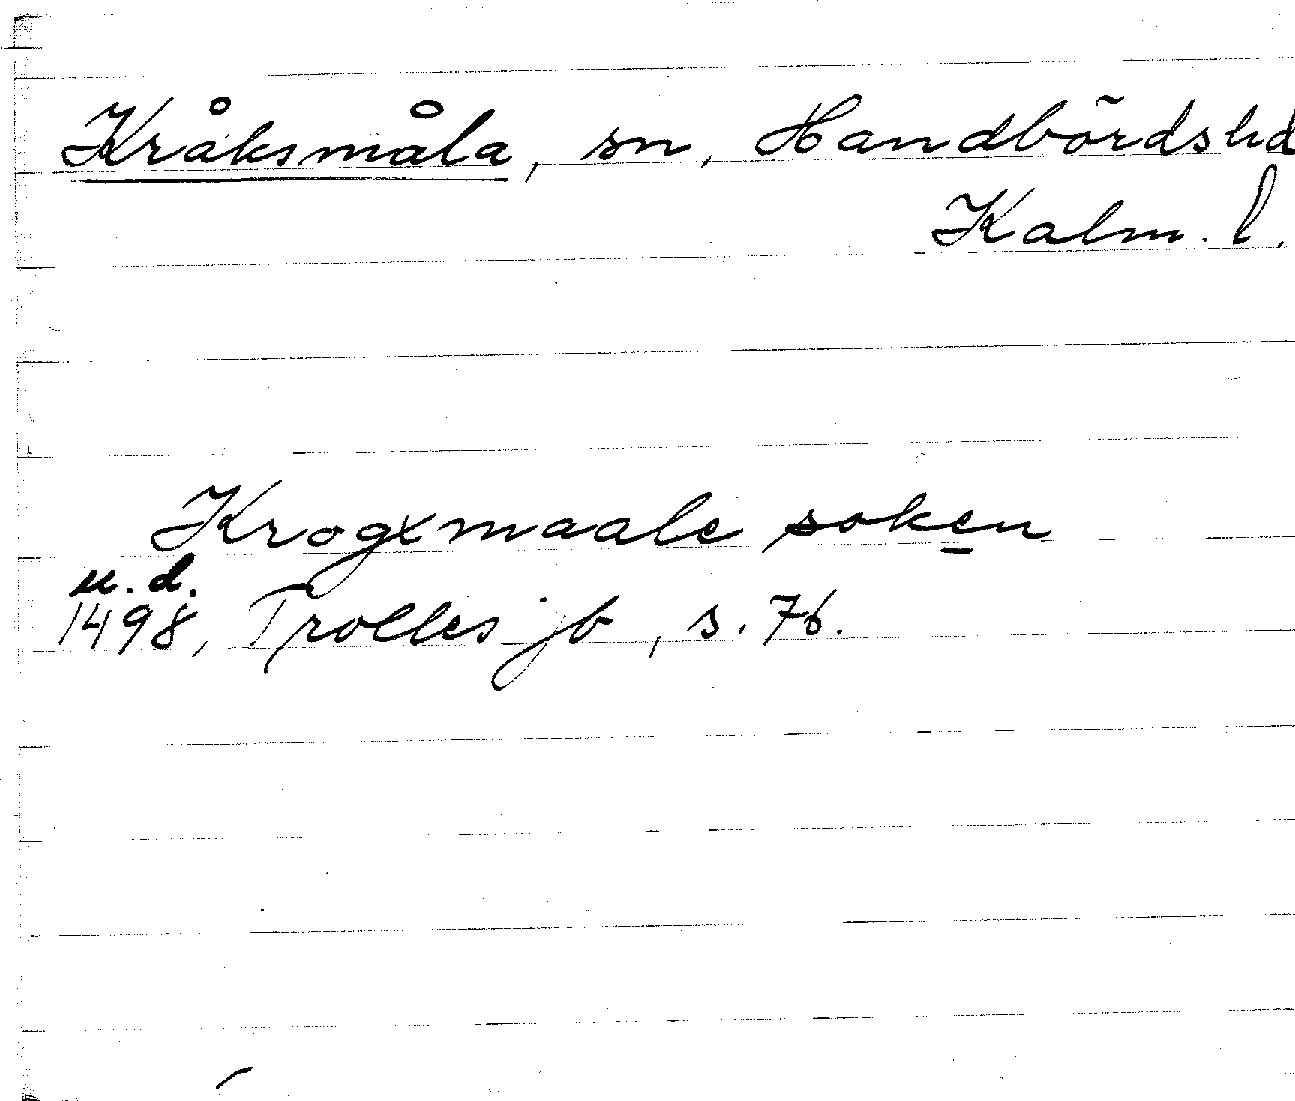 Kråksmåla, sn, Handbörds hd
Kalm. l.
Krogxmaale soken
u. d.
1498, Trolles jb, s. 76.